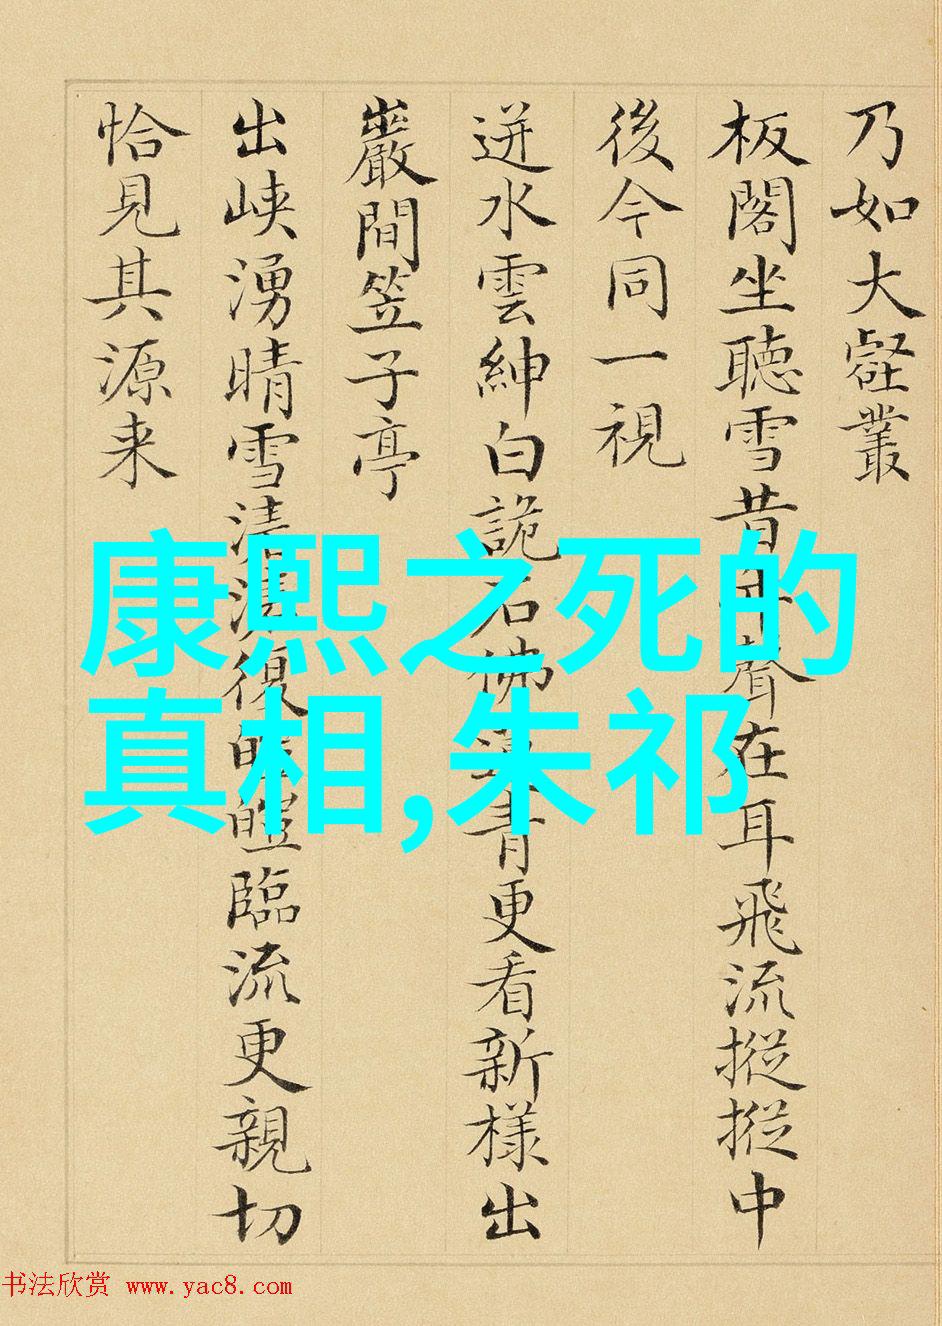 乃如大壑叢
板閣坐聽雪昔年聲在耳飛流摐摐中
後今同一視
迸水雲紳白詭石佛漫青更看新樣出
巖間笠子亭
出峽湧晴雪清湍復暄臨流更親切
恰見其源来
康熙之死的
真相,朱祁
书法欣赏 www.yac8.com